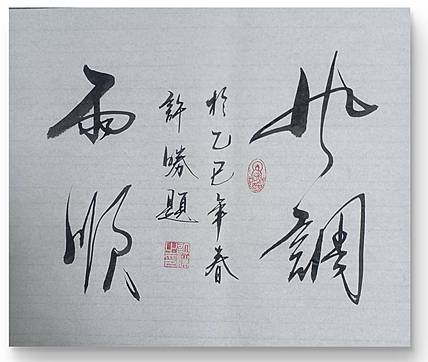 風調
於乙巳年春
許勝題
雨順